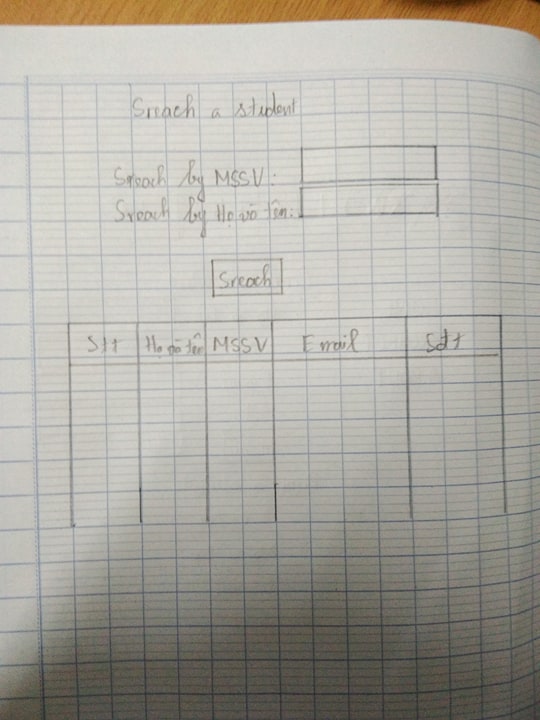 Sreach a student
Sreach by MSSV:
Sreach by Họ và tên:
Sreach
Stt Họ và tên MSSV Email Sdt